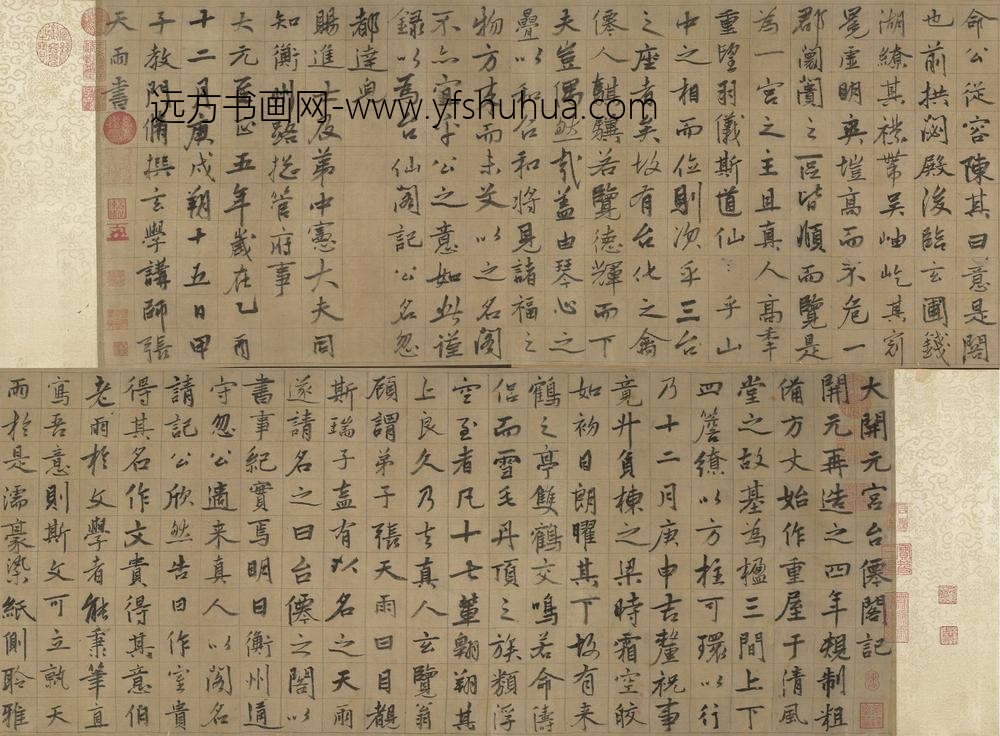 大開元宮台僊閣記
開元再造之四年規制粗
備方丈始作重屋于清風
堂之故基為楹三間上下
四簷繚以方柱可環以行
乃十二月庚申吉釐祝事
竟斗負棟之梁時霜空皎
如初日朗曜其下故有來
鶴之亭雙鶴交鳴若命儔
侶而雪毛丹頂之族纇浮
空至者凡十七輩翱翔其
上良久乃去真人玄覽翁
顧謂弟子張天雨曰目覩
斯瑞子盍有以名之天雨
遂請名之曰台僊之閣以
書事紀實焉明日衡州通
守忽公適來真人以閣名
請記公欣然告曰作室貴
得其名作文貴得其意伯
老雨於文學者能秉筆直
寫吾意則斯文可立孰天
雨於是濡豪染紙側聆雅
命公從容陳其曰意是閣
也前拱閟殿後臨玄圃錢
湖繚其襟帶吳岫屹其窗
冕虛明爽塏高而不危一
郡闤闠之區皆順而覽是
為一宮之主且真人高秉
重望羽儀斯道仙乎山
中之相而位則次乎三台
之座者矣故有台化之禽
僊人騏驥若覽德輝而下
夫豈偶然哉蓋由琴心之
疊以和召和將見諸福之
物方來而未艾以之名閣
不亦宜乎公之意如此謹
錄以為台仙閣記公名忽
都達
賜進士及第中憲大夫同
知衡州路揔管府事
大元至正五年歲在乙酉
十二月庚戌朔十五日甲
子教門脩撰玄學講師張
天雨書
远方书画网-www.yfshuhua.com